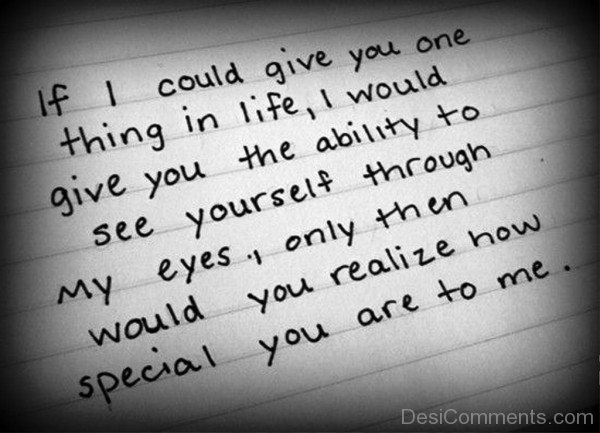 If I could give you one
thing in life, I would
give you the ability to
see yourself through
my eyes., only then
would you realize how
special you are to me.
DesiComments.com